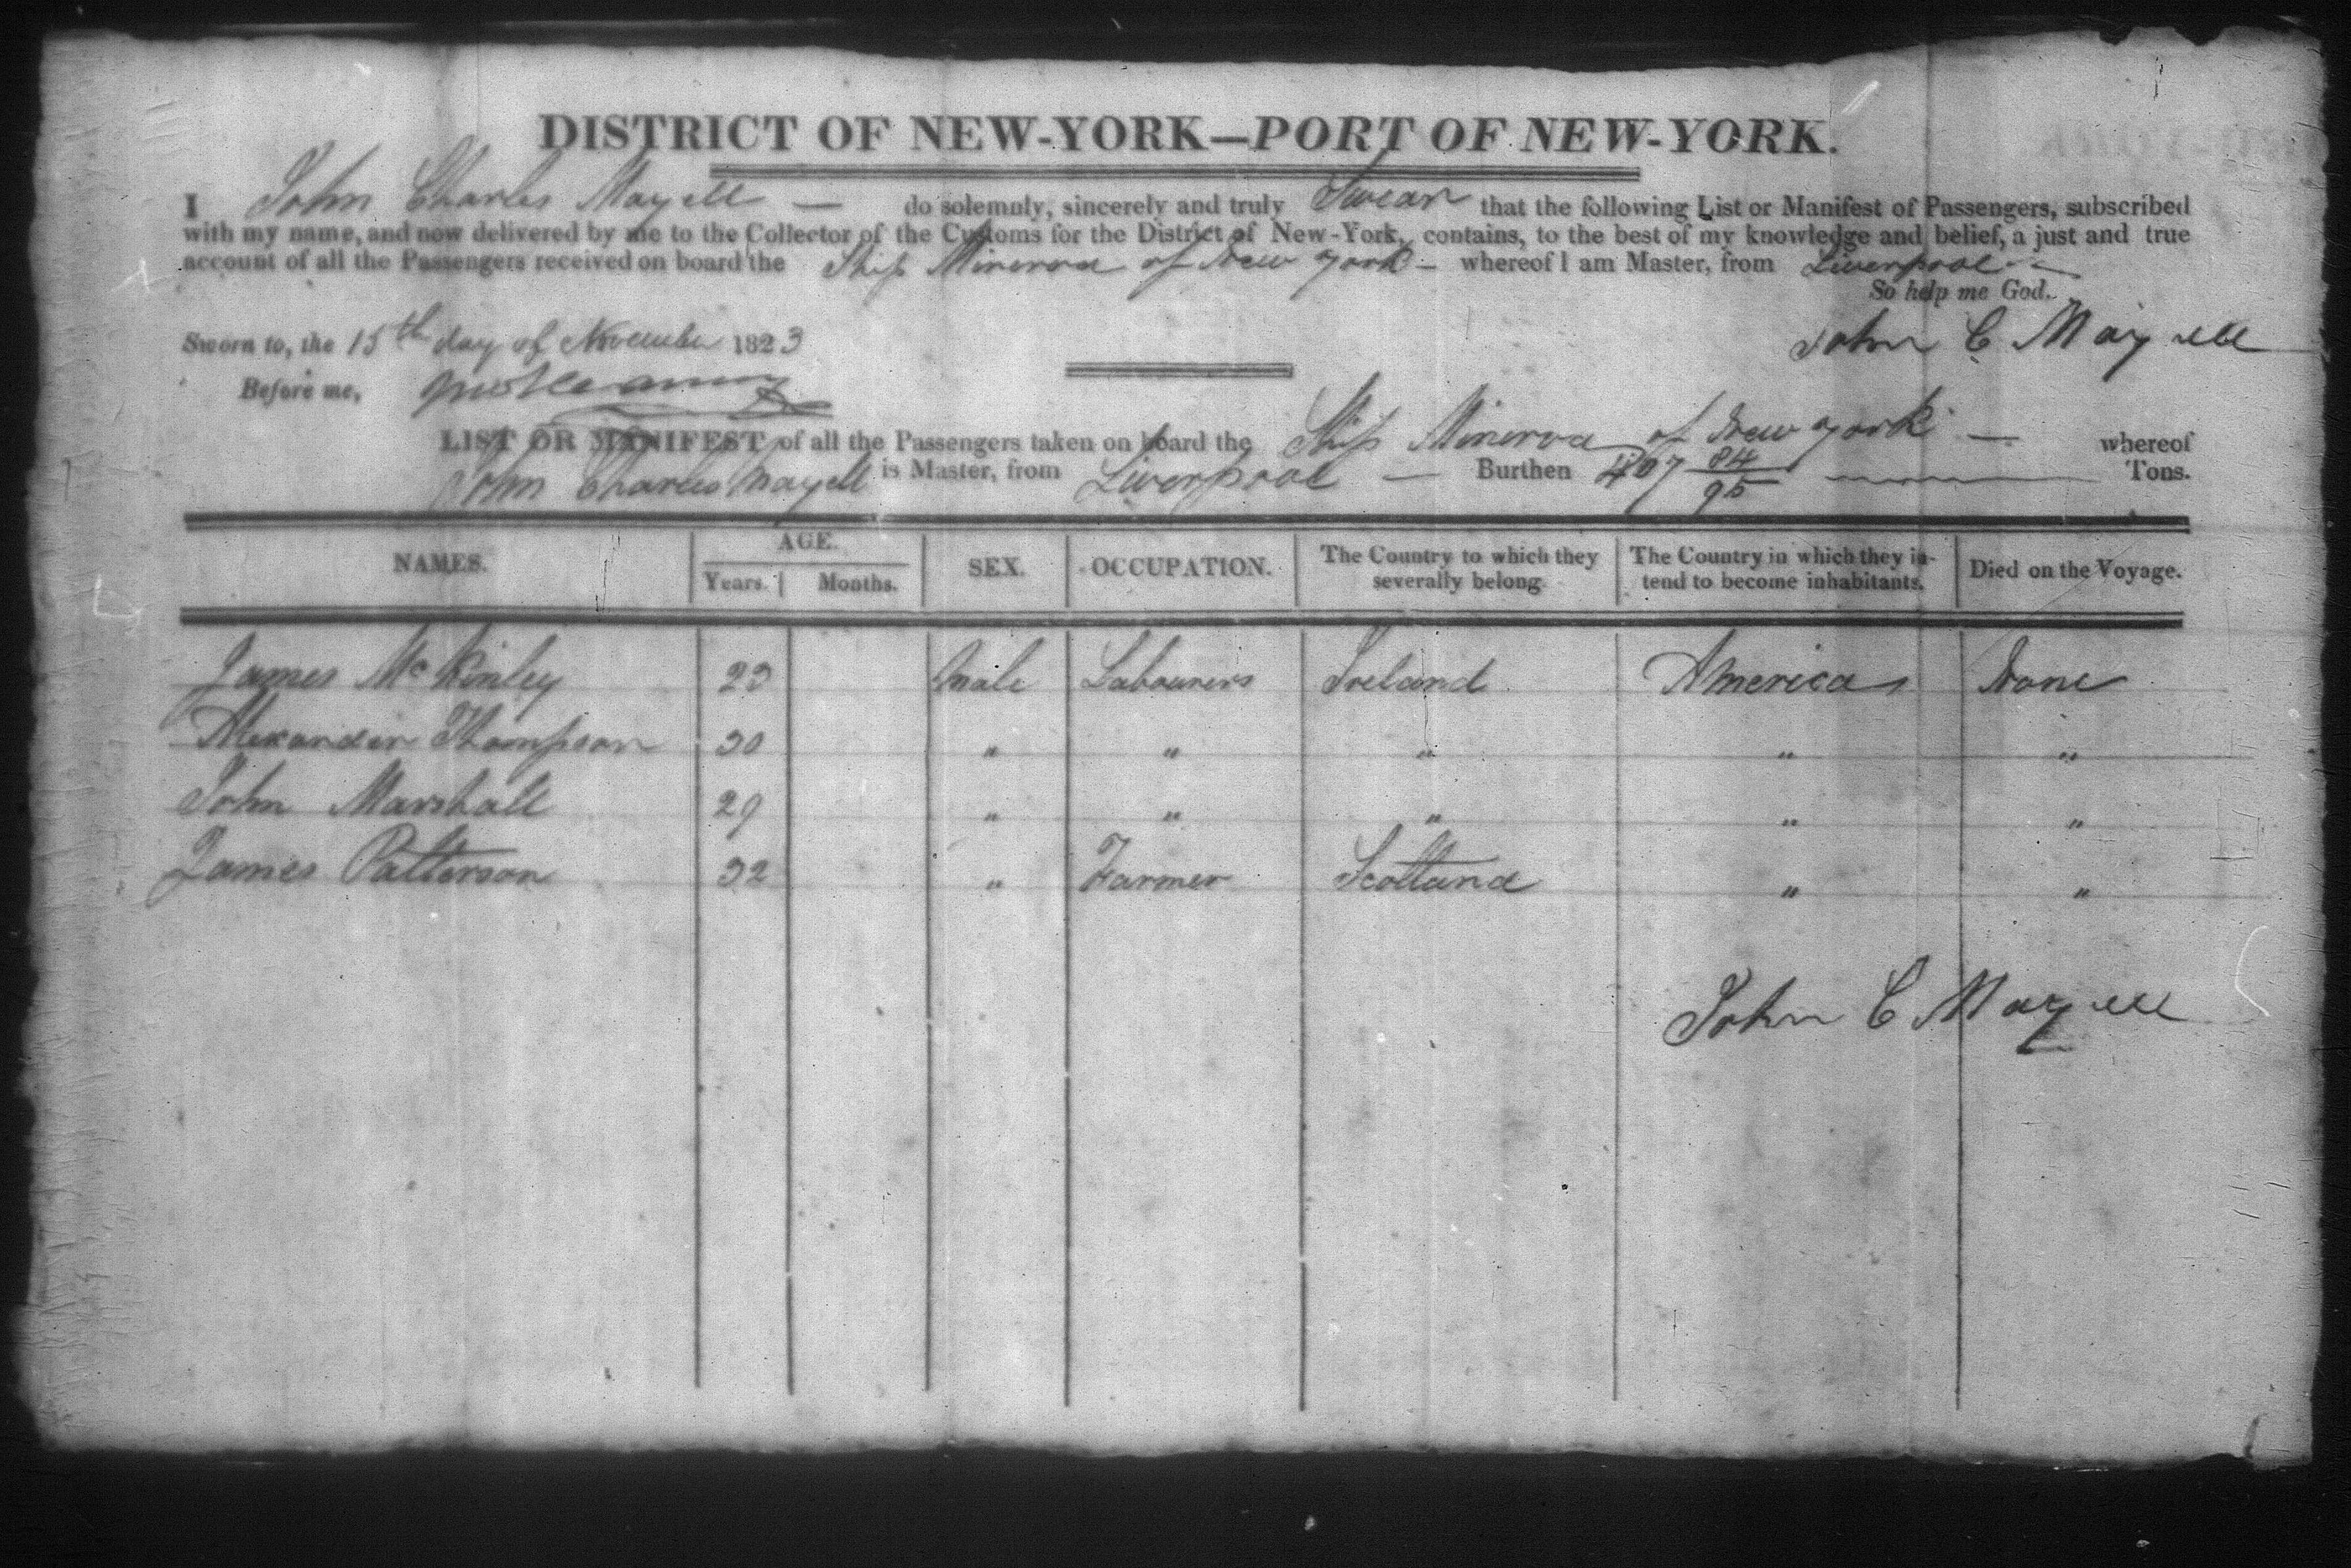 DISTRICT OF NEW-YORK—PORT OF NEW-YORK.
I John Charles Mayell — do solemnly, sincerely and truly Swear that the following List or Manifest of Passengers, subscribed
with my name, and now delivered by me to the Collector of the Customs for the District of New-York, contains, to the best of my knowledge and belief, a just and true
account of all the Passengers received on board the Ship Minerva of New York — whereof I am Master, from Liverpool
So help me God.
Sworn to, the 15th day of November 1823
John C Mayell
Before me,
LIST OR MANIFEST of all the Passengers taken on board the Ship Minerva of New York — whereof
John Charles Mayell is Master, from Liverpool — Burthen 407 84/95 Tons.
NAMES. AGE. SEX. OCCUPATION. The Country to which they severally belong. The Country in which they intend to become inhabitants. Died on the Voyage.
Years. Months.
James McKinley 23 Male Labourers Ireland America None
Alexander Thompson 30 " " " " "
John Marshall 29 " " " " "
James Patterson 32 " Farmer Scotland " "
John C Mayell